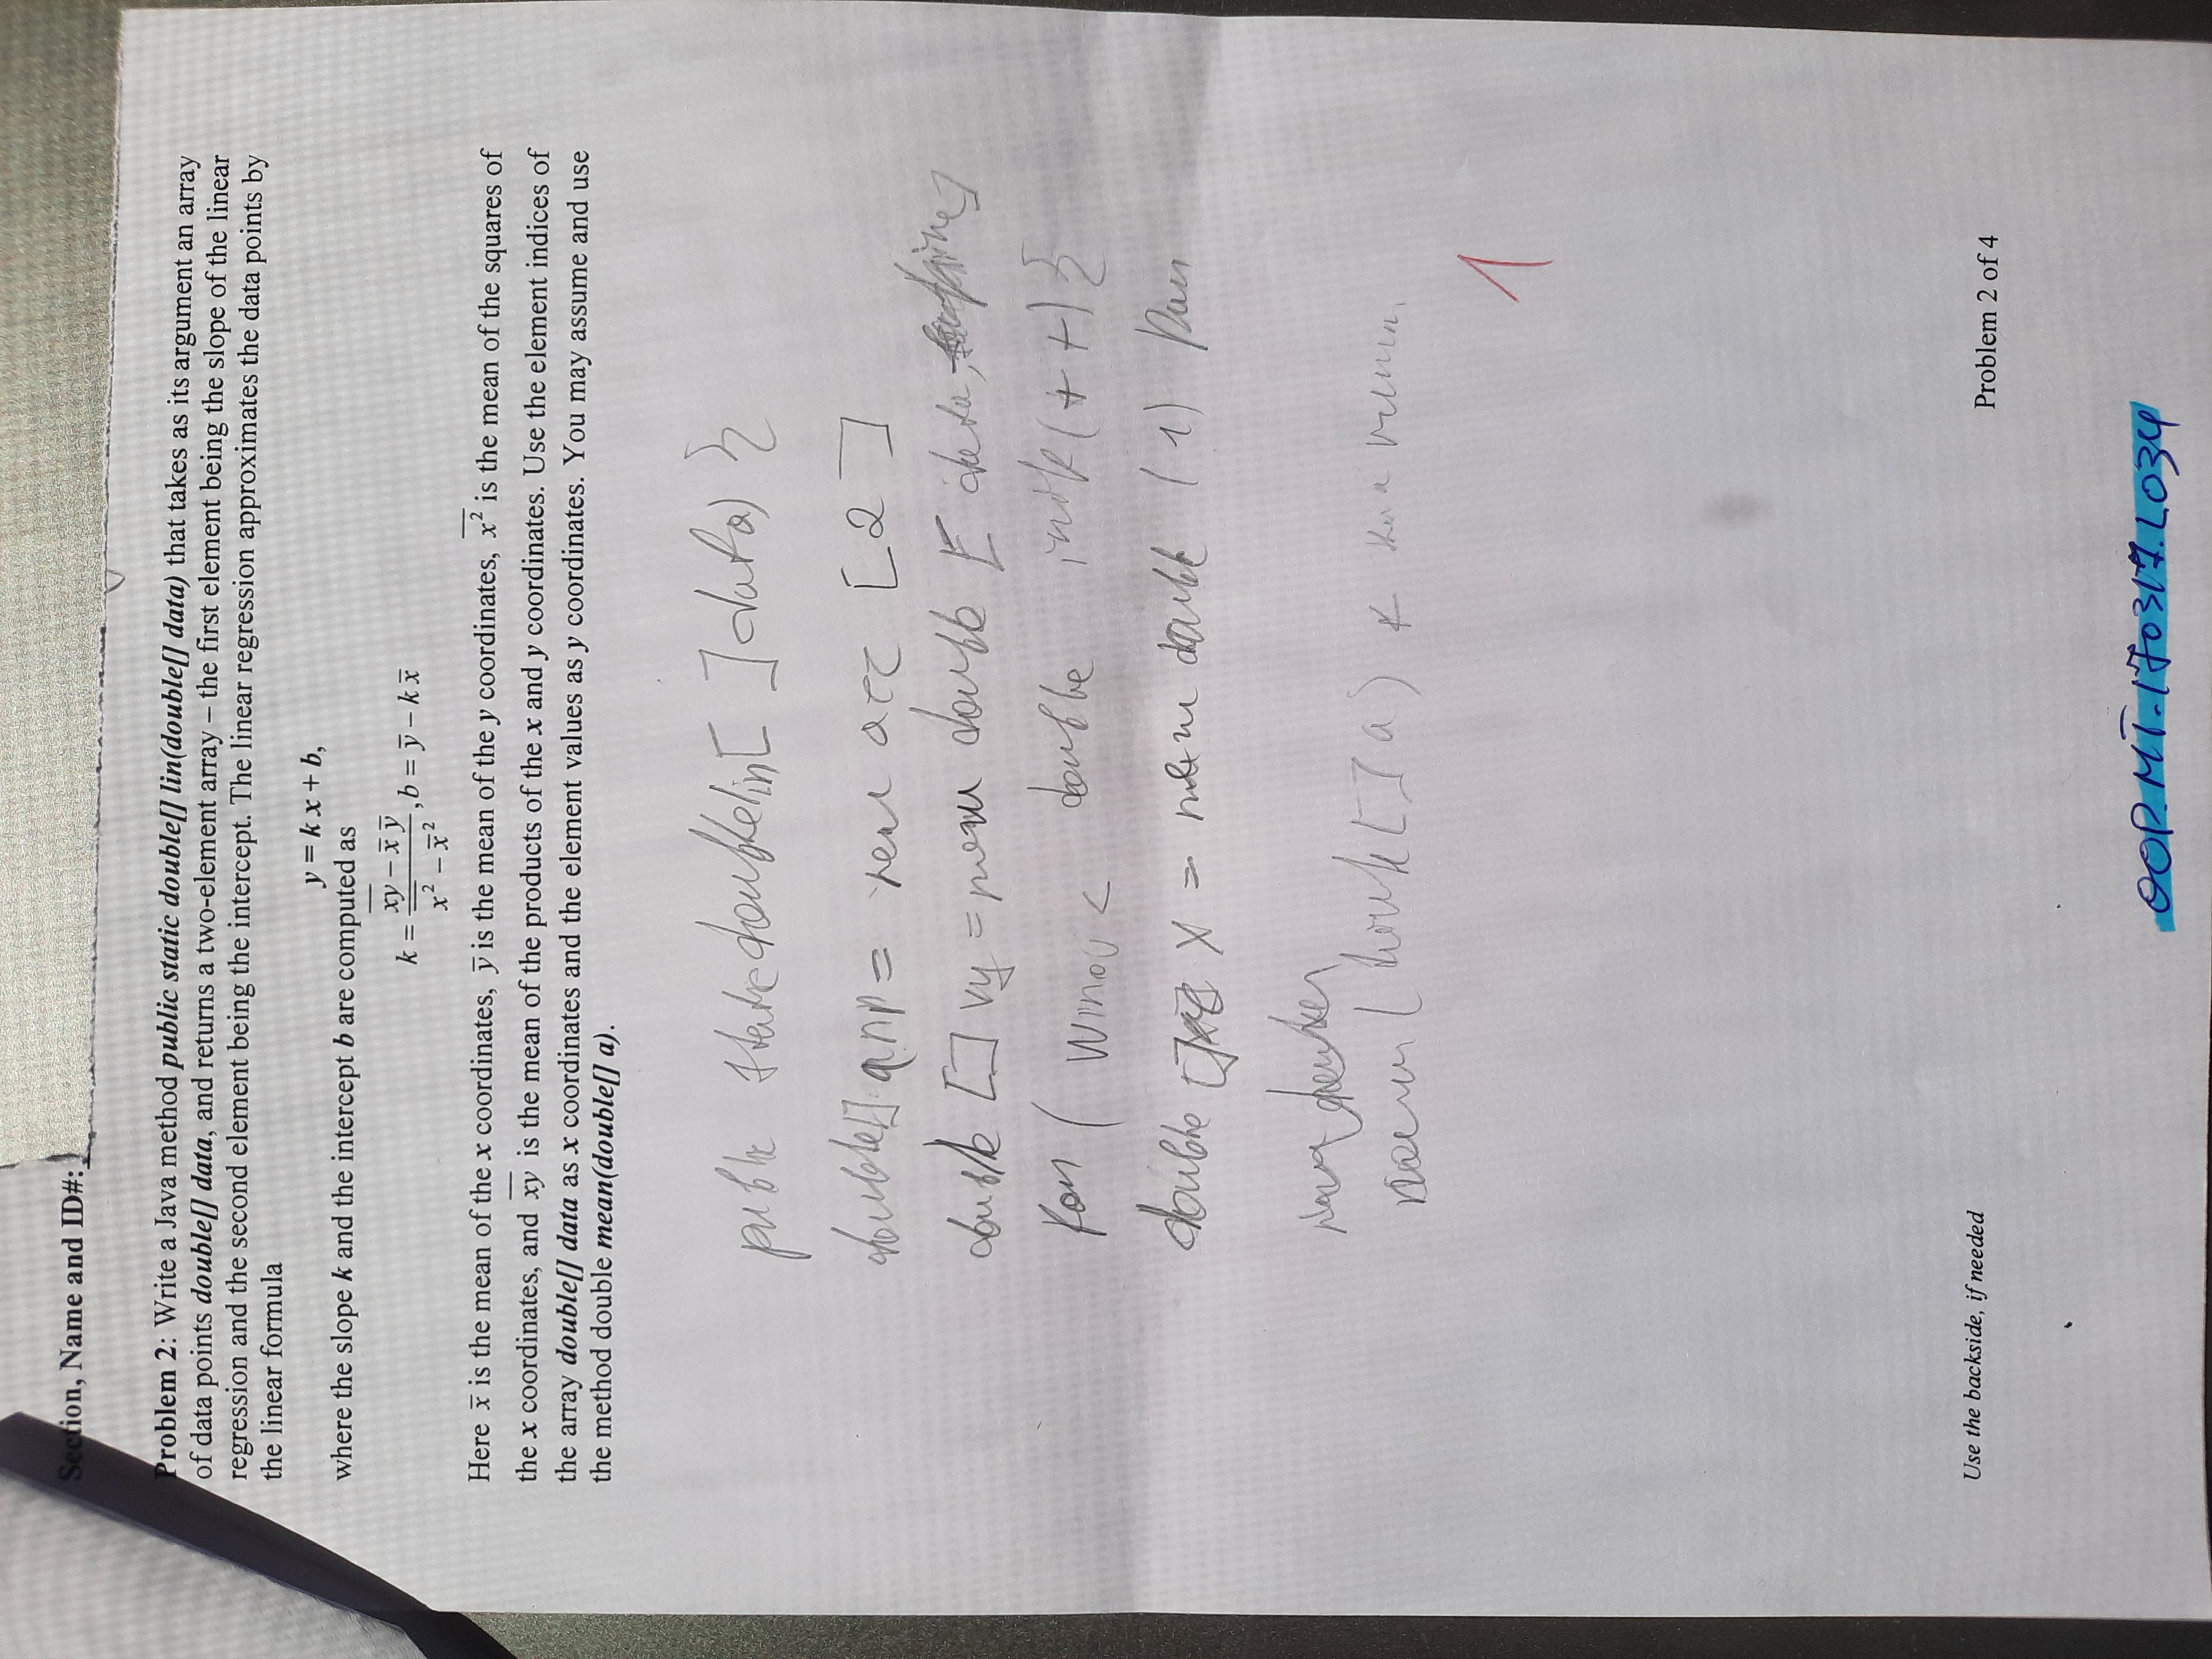 Section, Name and ID#:
Problem 2: Write a Java method public static double[] lin(double[] data) that takes as its argument an array
of data points double[] data, and returns a two-element array – the first element being the slope of the linear
regression and the second element being the intercept. The linear regression approximates the data points by
the linear formula
y = k x + b,
where the slope k and the intercept b are computed as
k = (x̅y̅ – x̅ y̅) / (x̅²̅ – x̅²), b = y̅ – k x̅
Here x̅ is the mean of the x coordinates, y̅ is the mean of the y coordinates, x̅²̅ is the mean of the squares of
the x coordinates, and x̅y̅ is the mean of the products of the x and y coordinates. Use the element indices of
the array double[] data as x coordinates and the element values as y coordinates. You may assume and use
the method double mean(double[] a).
public static double lin[ ] data) }
double[] = [2]
double [] xy = double [ data,
( double (++) }
double X = double (1)
( [] a)
1
Use the backside, if needed
Problem 2 of 4
OOP.MT.170317.L034